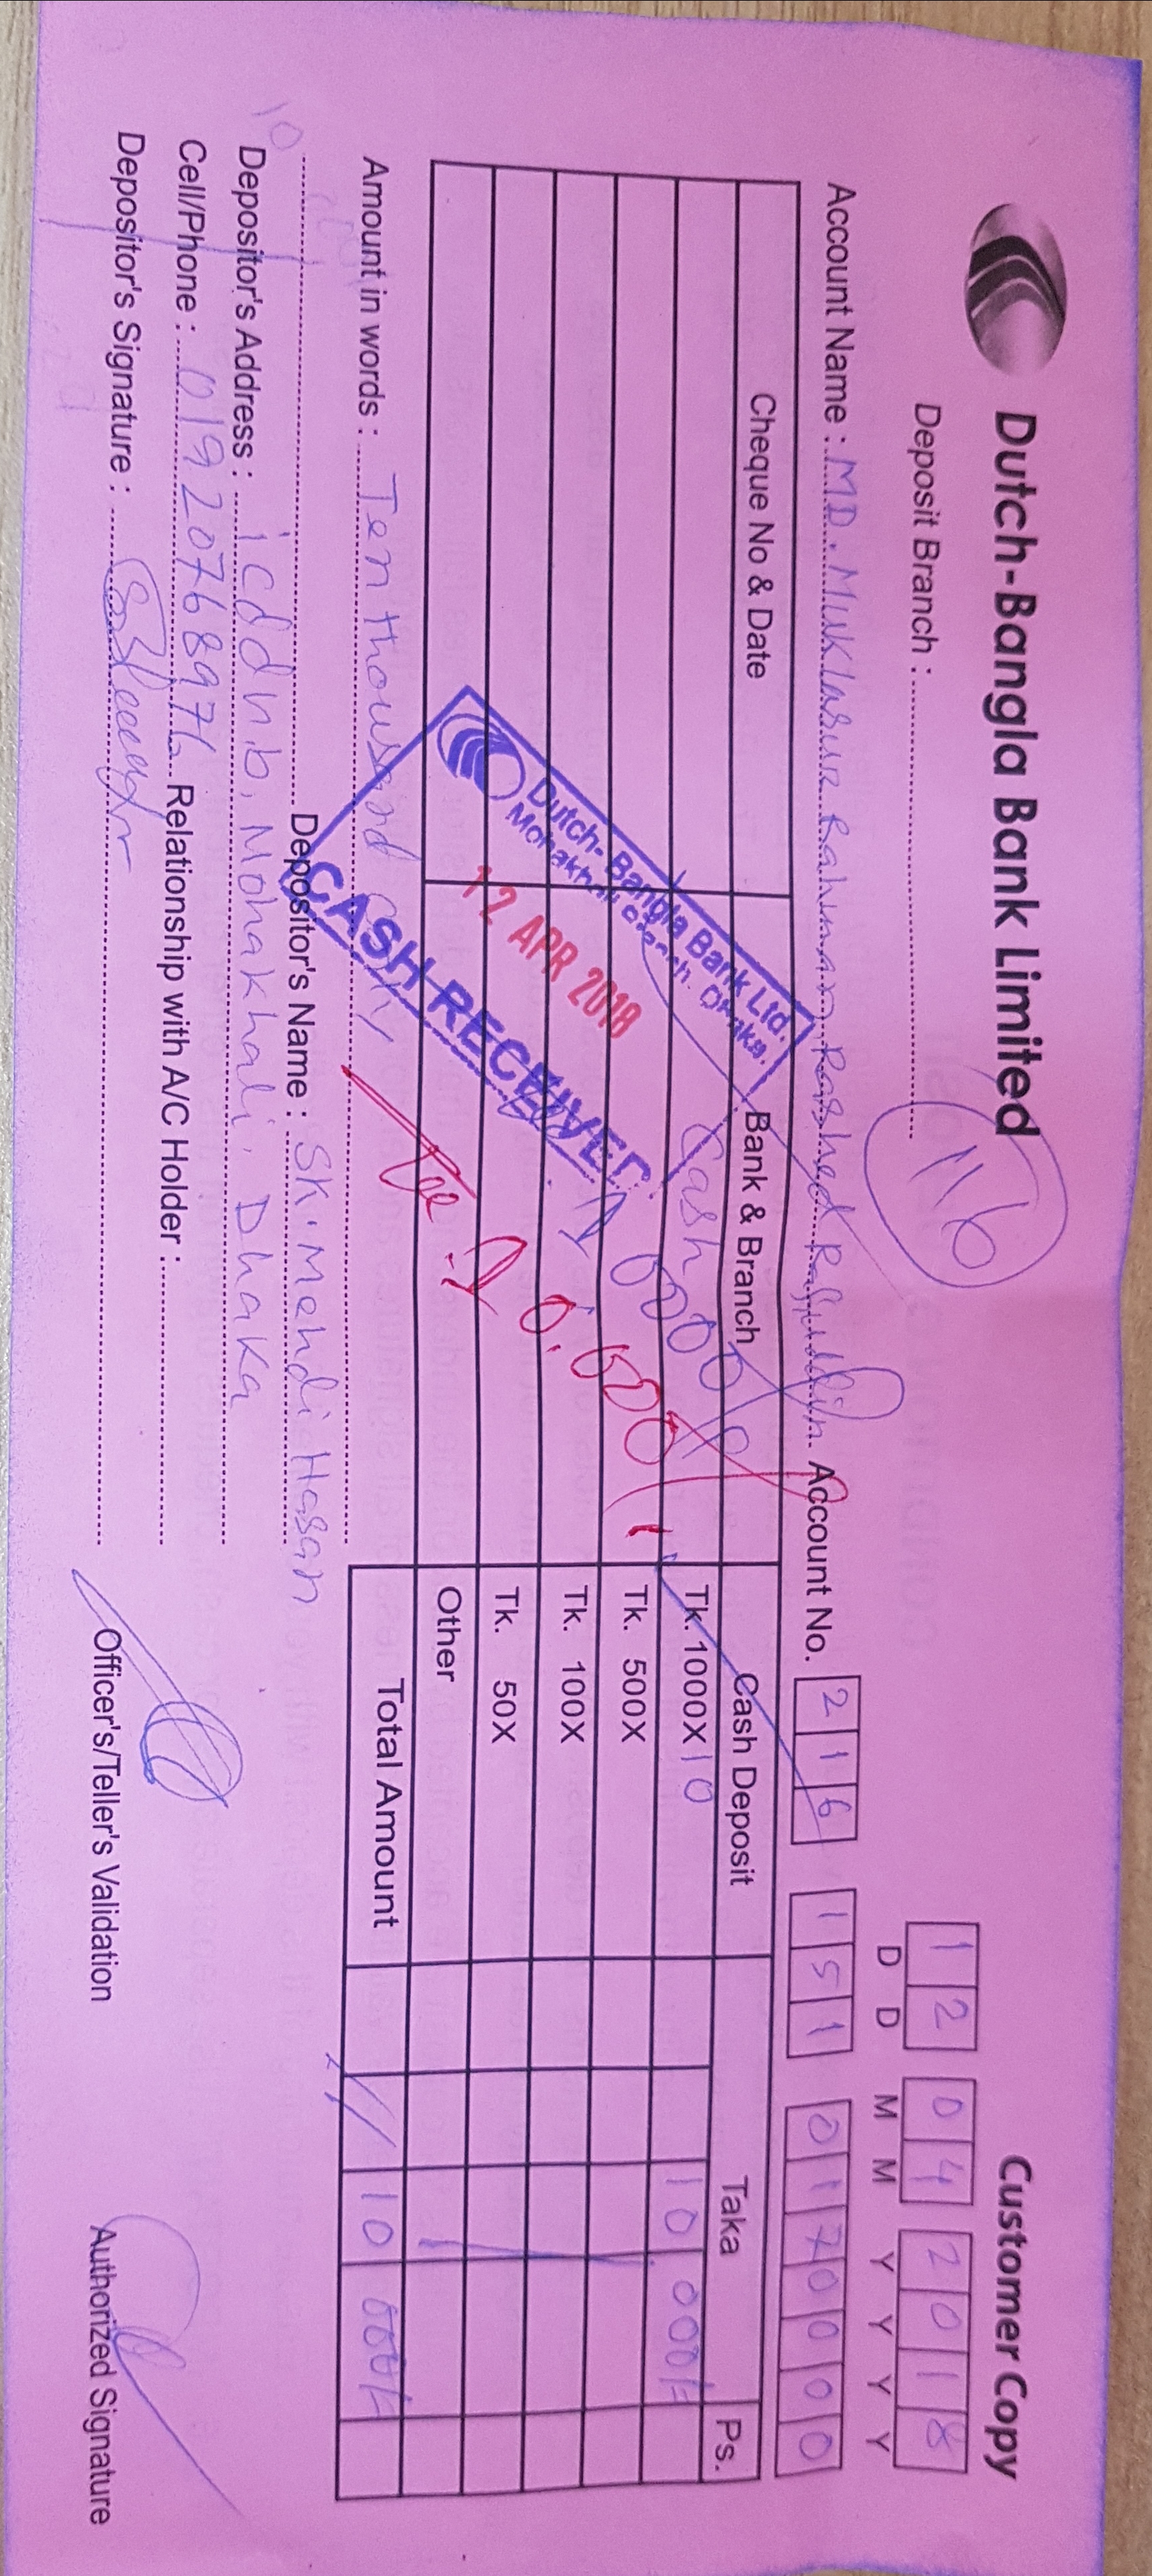 Dutch-Bangla Bank Limited
Customer Copy
Deposit Branch :
116
12 04 2018
D D M M Y Y Y Y
Account Name : MD. Muklasur Rahman Account No. 216 151 0170000
Cheque No & Date Bank & Branch Cash Deposit Taka Ps.
Cash Tk. 1000X 10 10 000/=
Tk. 500X
Tk. 100X
Tk. 50X
Other
10000/
10,000/
Dutch-Bangla Bank Ltd.
Mohakhali Branch. Dhaka.
12 APR 2018
CASH RECEIVED
Total Amount 10 000/=
Amount in words : Ten thousand only
Depositor's Name : SK. Mehdi Hasan
Depositor's Address : icddrb, Mohakhali, Dhaka
Cell/Phone : 01920768976 Relationship with A/C Holder :
Depositor's Signature :
Officer's/Teller's Validation
Authorized Signature